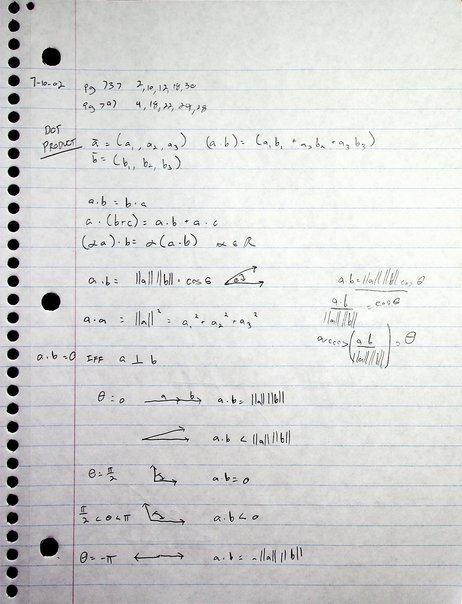 7-10-02 pg 737 2, 10, 12, 18, 30
pg 747 4, 18, 22, 24, 28
DOT PRODUCT
a̅ = (a₁, a₂, a₃) (a·b) = (a₁b₁ + a₂b₂ + a₃b₃)
b̅ = (b₁, b₂, b₃)
a·b = b·a
a·(b+c) = a·b + a·c
(αa)·b = α(a·b) α ∈ R
a·b = ||a|| ||b|| · cos θ
a·b = ||a|| ||b|| cos θ
a·b / ||a|| ||b|| = cos θ
a·a = ||a||² = a₁² + a₂² + a₃²
arccos (a·b / ||a|| ||b||) = θ
a·b = 0 IFF a ⊥ b
θ = 0 a b a·b = ||a|| ||b||
a·b < ||a|| ||b||
θ = π/2 a·b = 0
π/2 < θ < π a·b < 0
θ = -π a·b = -||a|| ||b||